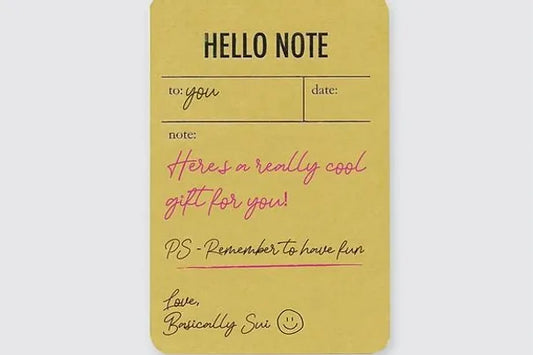 HELLO NOTE
to: you
date:
note:
Heres a really cool
gift for you!
PS - Remember to have fun
Love,
Basically Sui